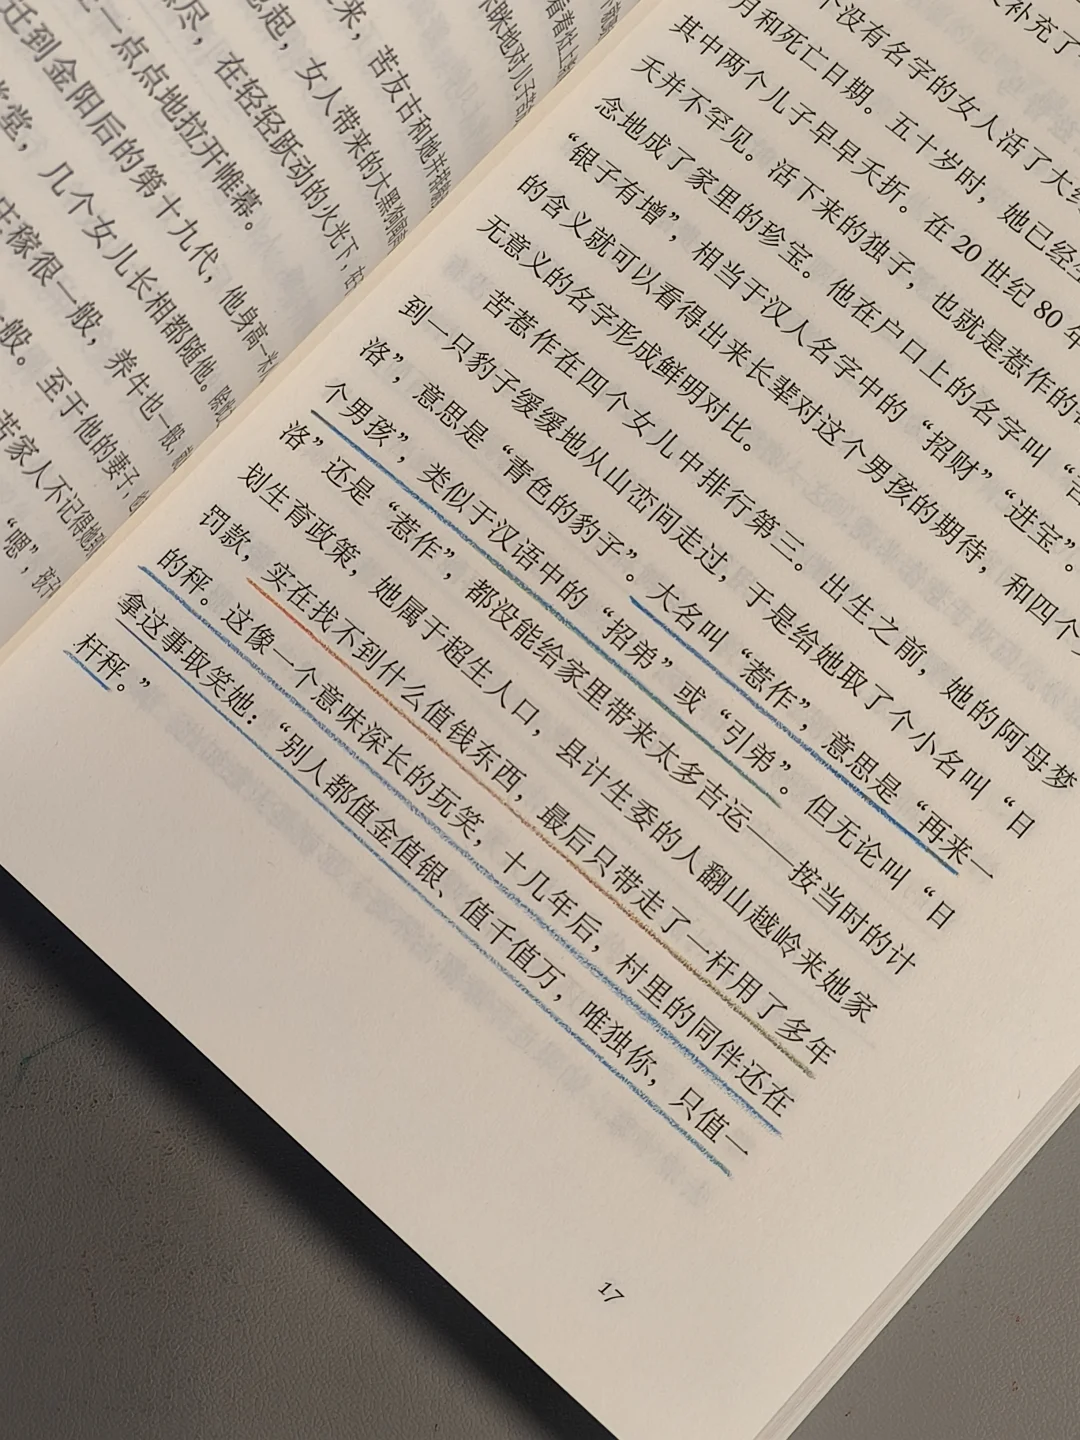 迁到金阳后的第十九代，他身高一米
一点点地拉开帷幕。
尽，在轻轻跃动的火光下，
起，女人带来的大黑狗
来，苦友古和她并排
堂，几个女儿长相都随他。
庄稼很一般，养牛也一般，
般。至于他的妻子，
苦家人不记得她
“嗯”，孩子
补充了
个没有名字的女人活了大约
月和死亡日期。五十岁时，她已经生
其中两个儿子早早夭折。在20世纪80年
夭并不罕见。活下来的独子，也就是惹作的
念地成了家里的珍宝。他在户口上的名字叫“
“银子有增”，相当于汉人名字中的“招财”“进宝”。
的含义就可以看得出来长辈对这个男孩的期待，和四个
无意义的名字形成鲜明对比。
苦惹作在四个女儿中排行第三。出生之前，她的阿母梦
到一只豹子缓缓地从山峦间走过，于是给她取了个小名叫“日
洛”，意思是“青色的豹子”。大名叫“惹作”，意思是“再来一
个男孩”，类似于汉语中的“招弟”或“引弟”。但无论叫“日
洛”还是“惹作”，都没能给家里带来太多吉运——按当时的计
划生育政策，她属于超生人口，县计生委的人翻山越岭来她家
罚款，实在找不到什么值钱东西，最后只带走了一杆用了多年
的秤。这像一个意味深长的玩笑，十几年后，村里的同伴还在
拿这事取笑她：“别人都值金值银、值千值万，唯独你，只值一
杆秤。”
17